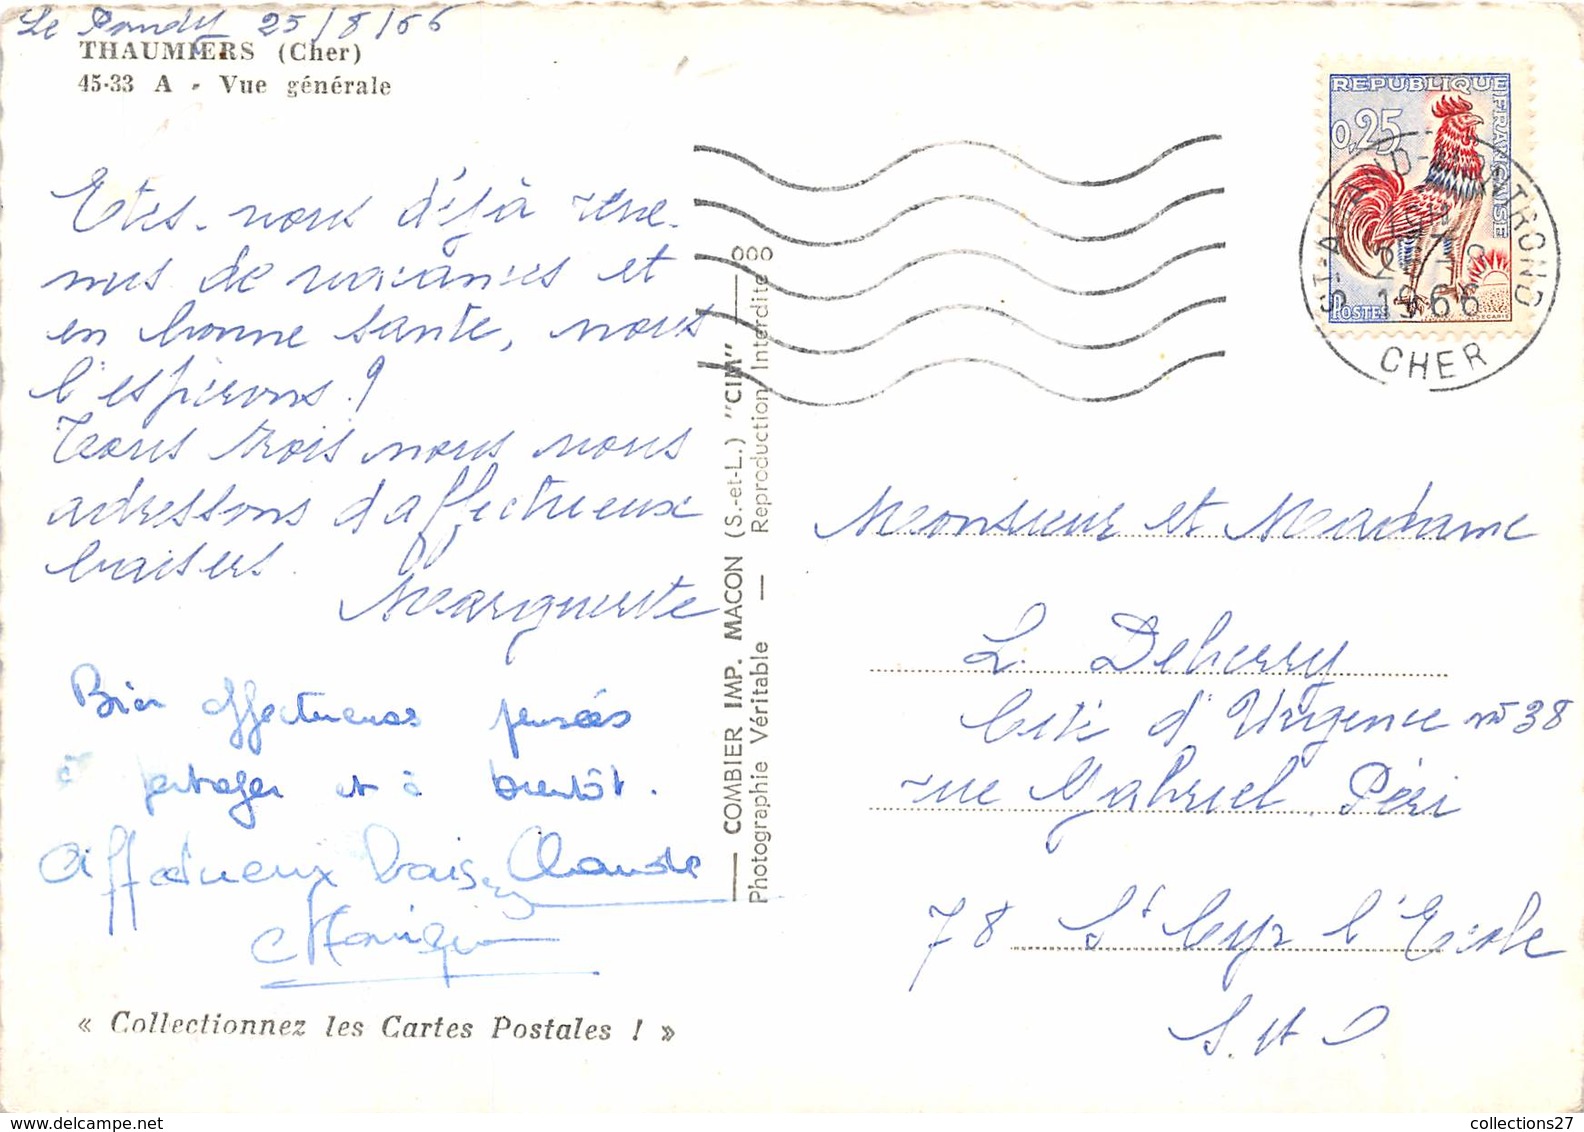 Le Pondy 25/8/66
THAUMIERS (Cher)
45-33 A - Vue générale
Etes-vous déjà reve-
nus de vacances et
en bonne santé, nous
l'espérons !
Tous trois nous vous
adressons d'affectueux
baisers.
Marguerite
Bien affectueuses pensées
à partager et à bientôt.
Affectueux baisers Claude
Monique
« Collectionnez les Cartes Postales ! »
COMBIER IMP. MACON (S.-et-L.) "CIM"
Photographie Véritable — Reproduction Interdite
REPUBLIQUE FRANÇAISE
0,25
POSTES
ST-AMAND-MONTROND
1966
CHER
Monsieur et Madame
L. Deberry
Cité d'Urgence n° 38
rue Gabriel Péri
78 St Cyr l'Ecole
S. et O
collections27